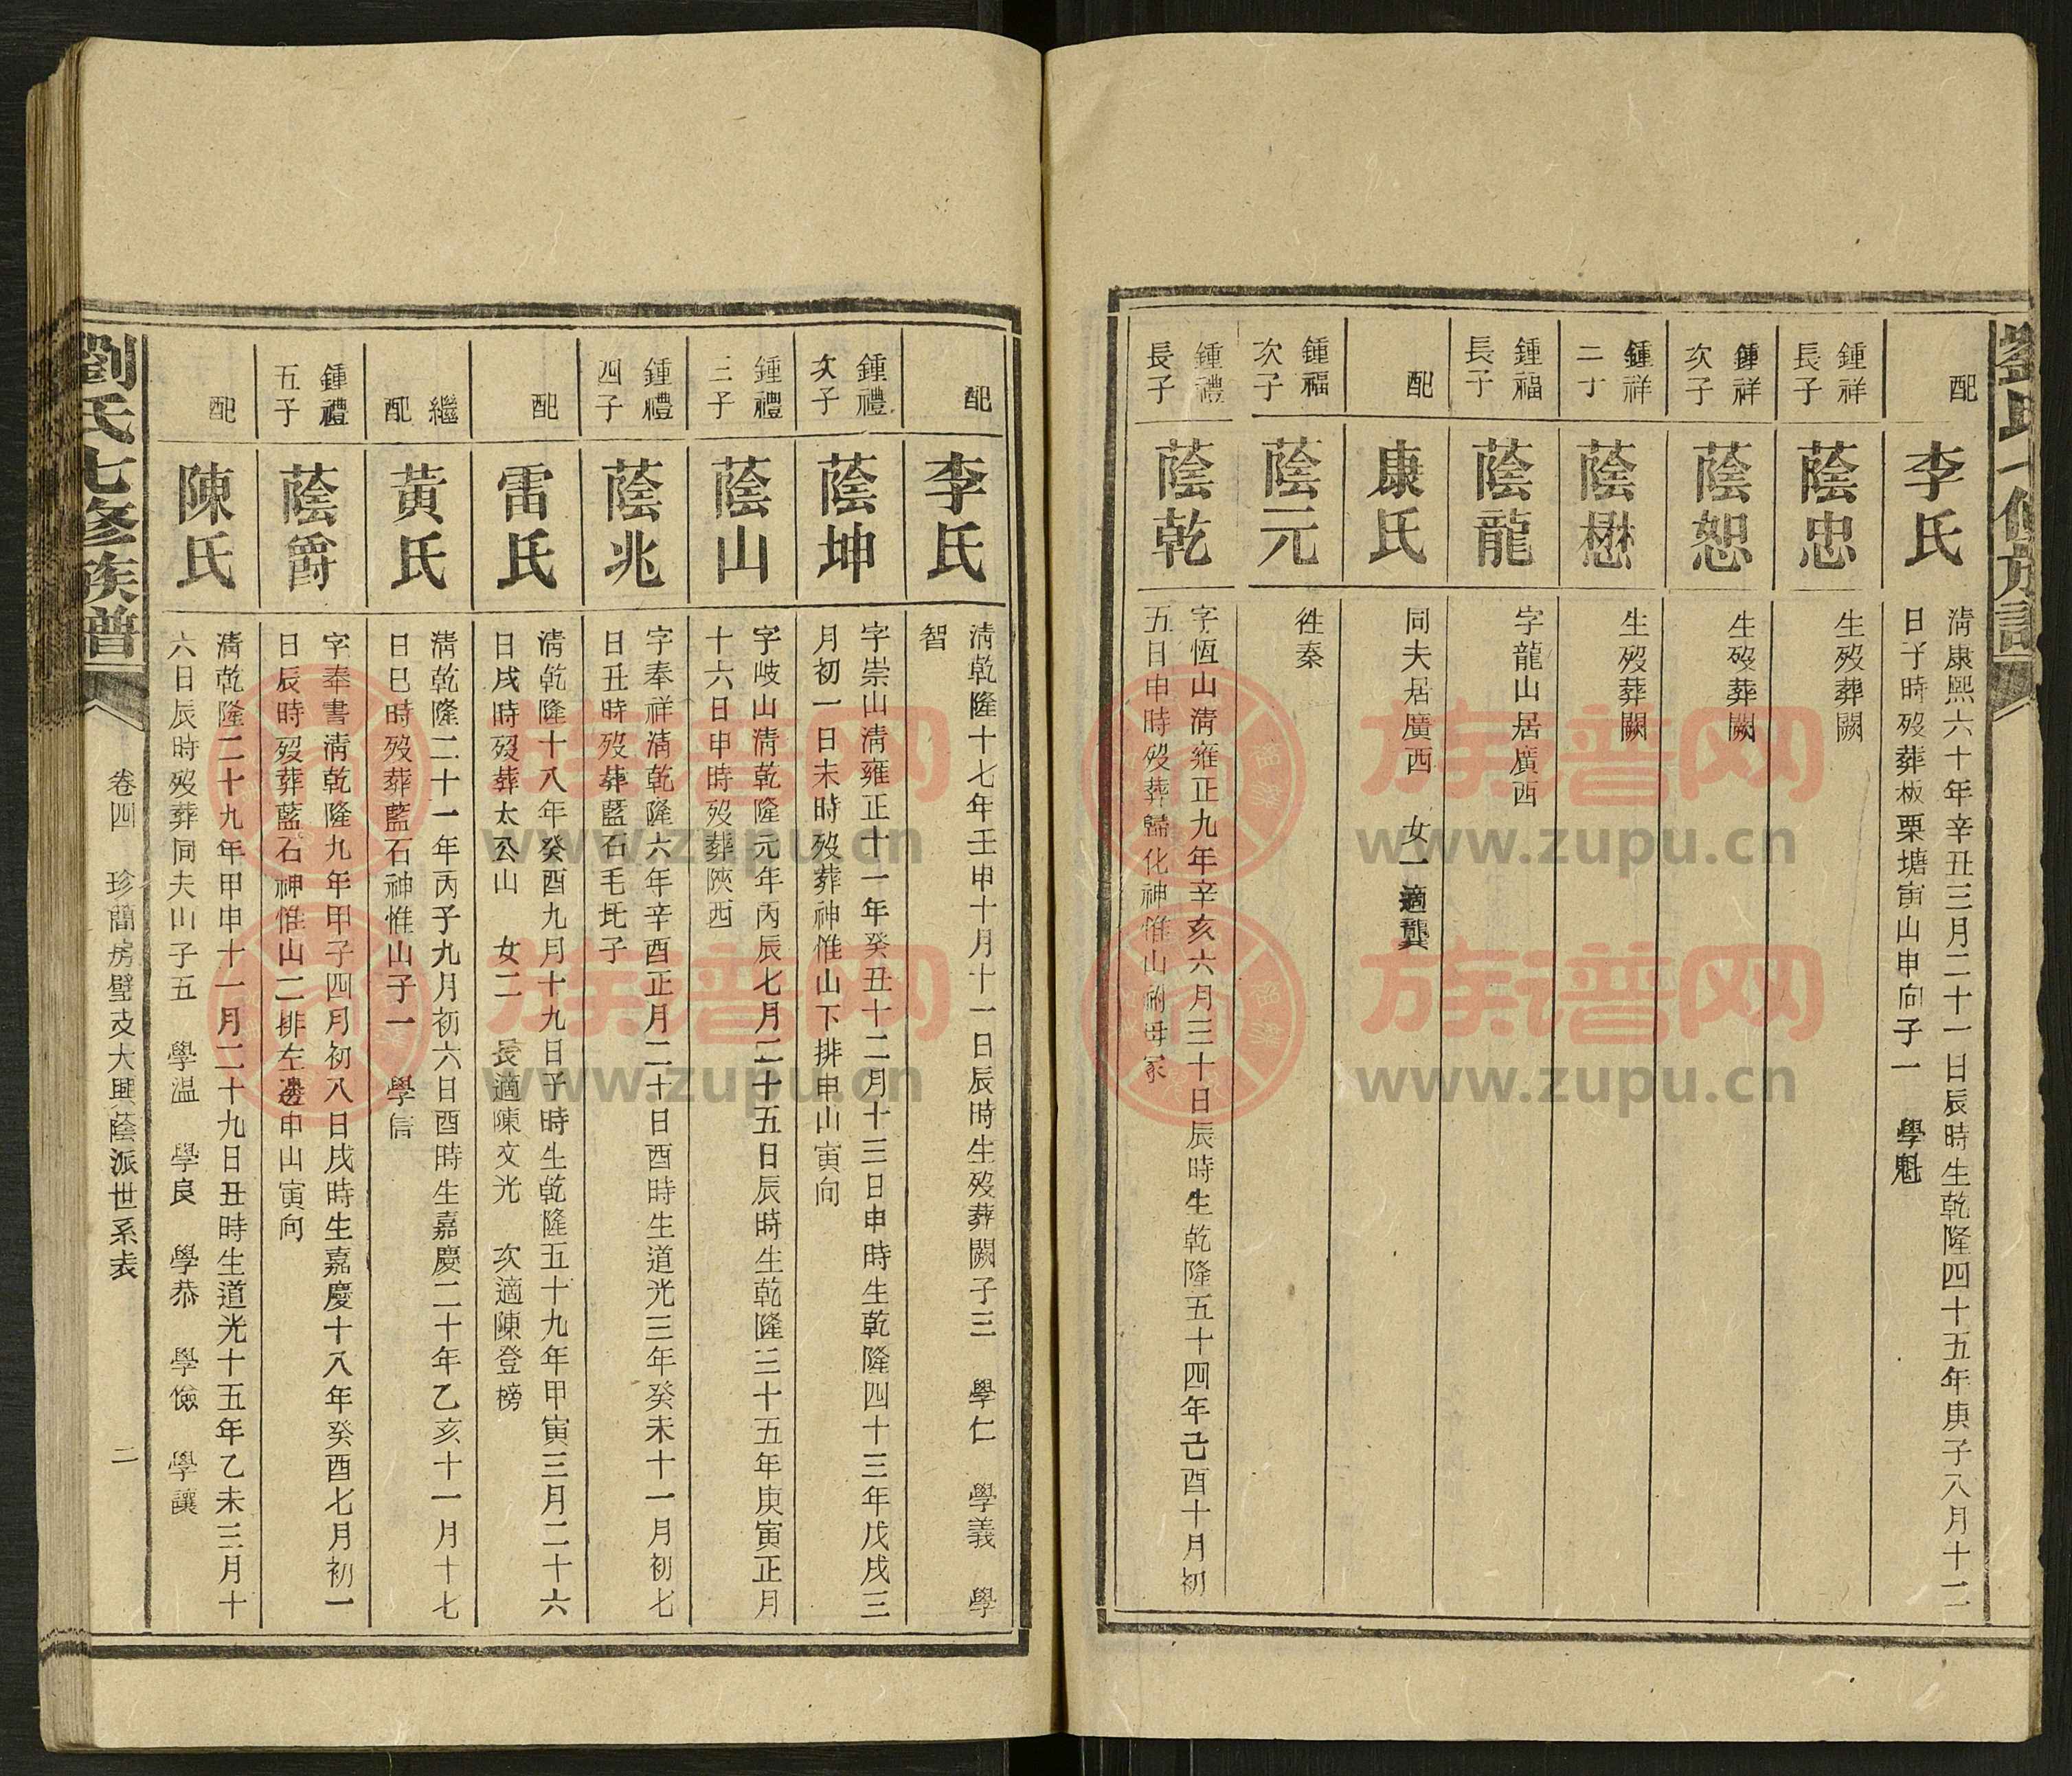 劉氏七修族譜
配
李氏
清康熙六十年辛丑三月二十一日辰時生乾隆四十五年庚子八月十二
日子時歿葬板栗塘寅山申向子一 學魁
鍾祥
長子
蔭忠
生歿葬闕
鍾祥
次子
蔭恕
生歿葬闕
鍾祥
蔭懋
生歿葬闕
鍾福
長子
蔭龍
字龍山居廣西
配
康氏
同夫居廣西 女一適龔
鍾福
次子
蔭元
徃秦
鍾禮
長子
蔭乾
字恆山清雍正九年辛亥六月三十日辰時生乾隆五十四年己酉十月初
五日申時歿葬歸化神惟山祔母冢
配
李氏
清乾隆十七年壬申十月十一日辰時生歿葬闕子三 學仁 學義 學
智
鍾禮
次子
蔭坤
字崇山清雍正十一年癸丑十二月十三日申時生乾隆四十三年戊戌三
月初一日未時歿葬神惟山下排申山寅向
鍾禮
三子
蔭山
字岐山清乾隆元年丙辰七月二十五日辰時生乾隆三十五年庚寅正月
十六日申時歿葬陝西
鍾禮
四子
蔭兆
字奉祥清乾隆六年辛酉正月二十日酉時生道光三年癸未十一月初七
日丑時歿葬藍石毛坵子
配
雷氏
清乾隆十八年癸酉九月十九日子時生乾隆五十九年甲寅三月二十六
日戌時歿葬太公山 女二 長適陳文光 次適陳登榜
繼
配
黃氏
清乾隆二十一年丙子九月初六日酉時生嘉慶二十年乙亥十一月十七
日巳時歿葬藍石神惟山子一 學信
鍾禮
五子
蔭爵
字奉書清乾隆九年甲子四月初八日戌時生嘉慶十八年癸酉七月初一
日辰時歿葬藍石神惟山二排左邊申山寅向
配
陳氏
清乾隆二十九年甲申十一月二十九日丑時生道光十五年乙未三月十
六日辰時歿葬同夫山子五 學温 學良 學恭 學儉 學讓
劉氏七修族譜
卷四 珍蘭房璧支大興蔭派世系表 二
族谱网
www.zupu.cn
族谱网
www.zupu.cn
族谱网
www.zupu.cn
族谱网
www.zupu.cn